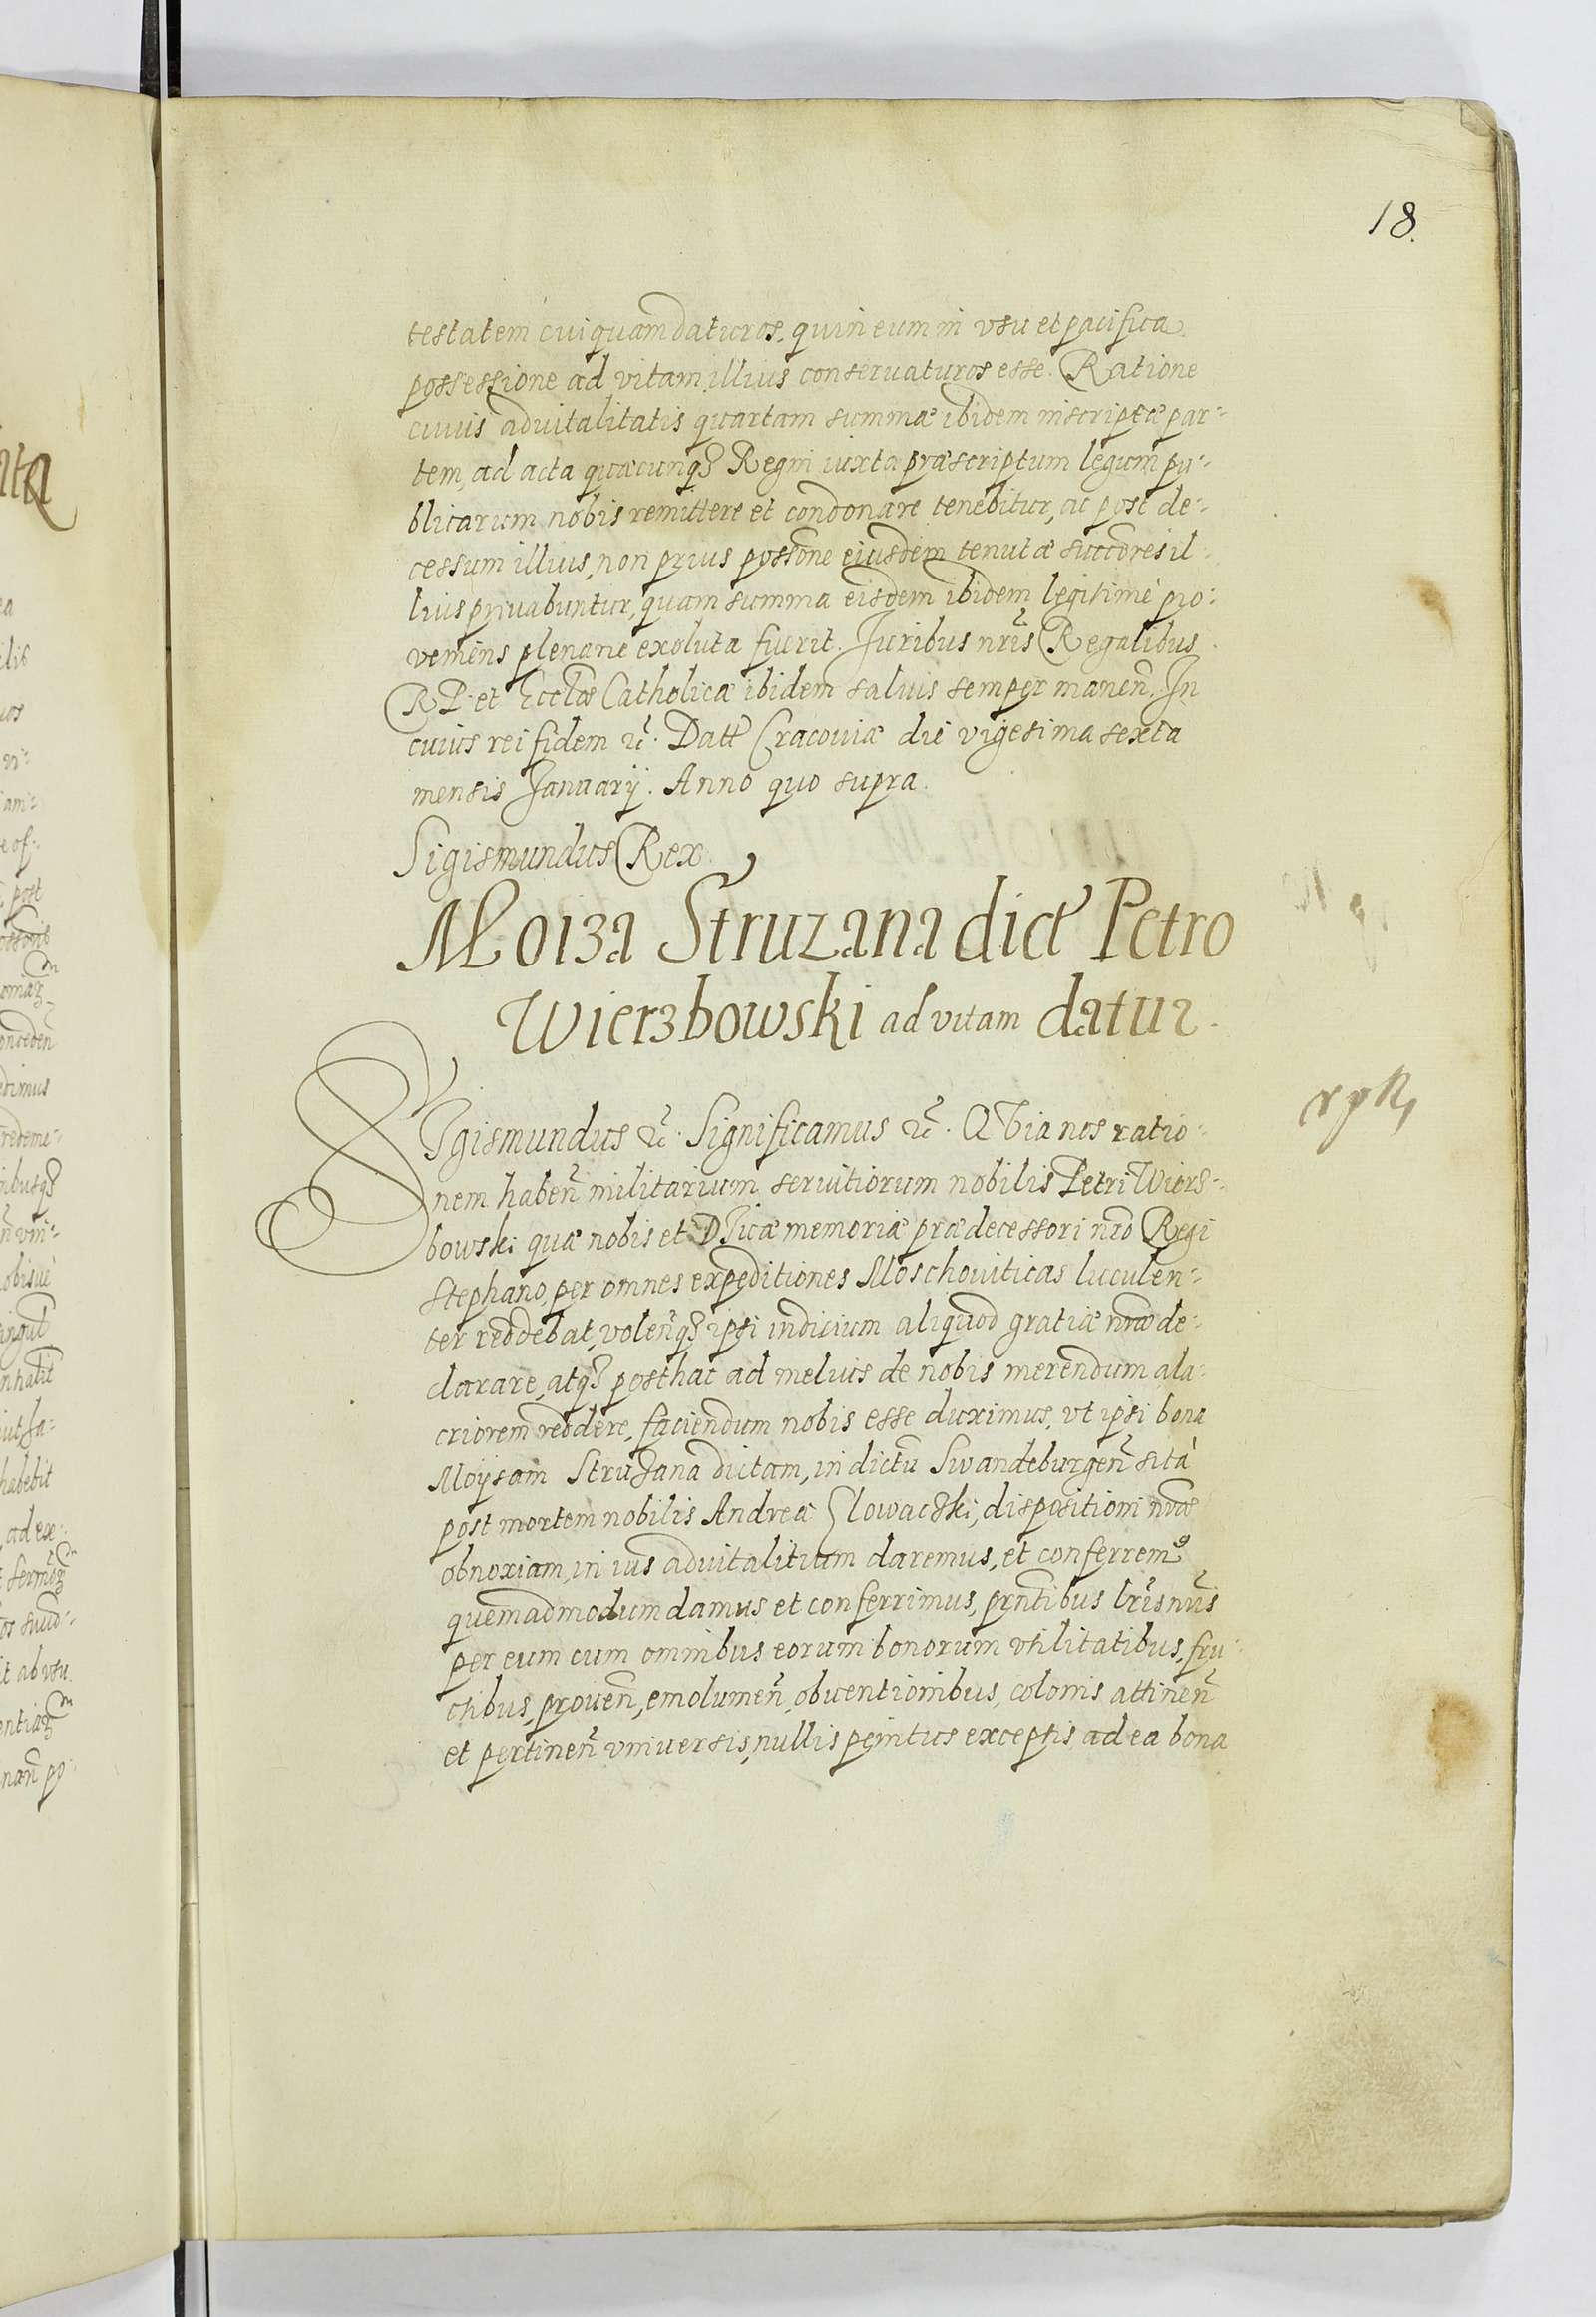 18.
testatem cuiquam daturos, quin eum in vsu et pacifica
possessione ad vitam illius conseruaturos esse. Ratione
cuius aduitalitatis quartam summæ ibidem inscriptæ par-
tem, ad acta quæcunq3 Regni iuxta præscriptum legum pu-
blicarum nobis remittere et condonare tenebitur, ac post de-
cessum illius, non prius possone eiusdem tenutæ succores il-
lius priuabuntur, quam summa eisdem ibidem legitimè pro-
veniens plenarie exoluta fuerit. Juribus nris Regalibus
RP. et Eccłæ Catholicæ ibidem saluis semper manen. In
cuius rei fidem etc. Datt Cracouiæ die vigesima sexta
mensis Januarij. Anno quo supra.
Sigismundus Rex.
Moiza Struzana dict Petro
Wierzbowski ad vitam datur.
SIgismundus etc. Significamus etc. QVia nos ratio-
nem haben militarium seruitiorum nobilis Petri Wiers-
bowski quæ nobis et Diuæ memoriæ prædecessori nro Regi
Stephano, per omnes expeditiones Moschouiticas luculen-
ter reddebat, volenq3 ipsi indicium aliquod gratiæ nræ de-
clarare, atq3 posthac ad melius de nobis merendum ala-
criorem reddere, faciendum nobis esse duximus, vt ipsi bona
Moysam Struzana dictam, in dictu Swandeburgen sita
post mortem nobilis Andreæ Slowacski, dispositioni nræ
obnoxiam, in ius aduitalitium daremus, et conferrem9
quemadmodum damus et conferrimus, prntibus lris nris
per eum cum omnibus eorum bonorum vtilitatibus, fru-
ctibus, prouen, emolumen, obuentionibus, colonis attinen
et pertinen vniuersis, nullis penitus exceptis ad ea bona